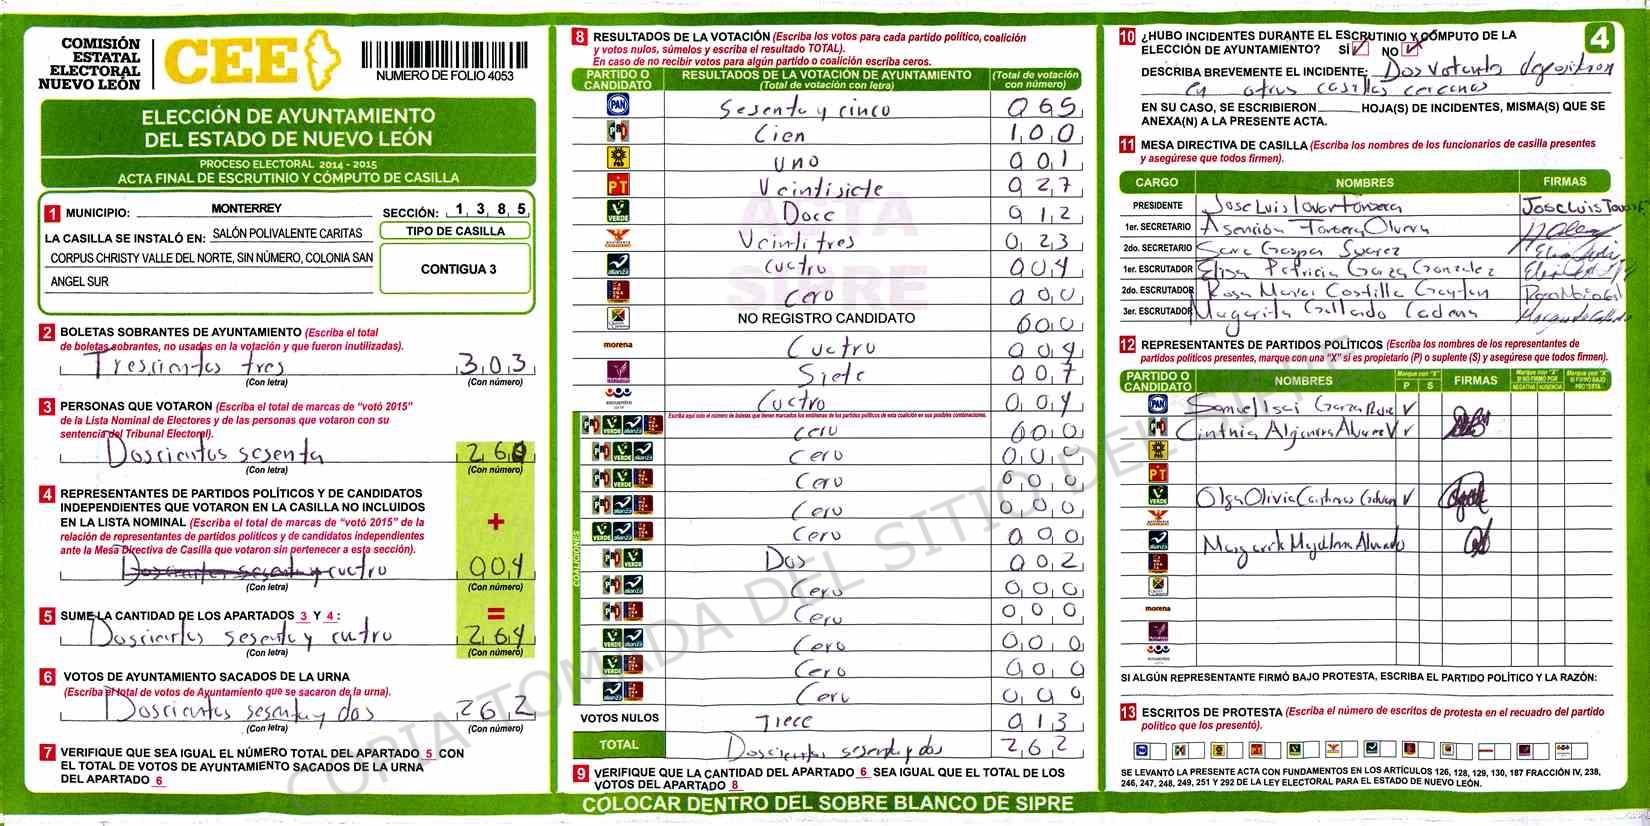 COMISIÓN
ESTATAL
ELECTORAL
NUEVO LEÓN
CEE
NUMERO DE FOLIO 4053
ELECCIÓN DE AYUNTAMIENTO
DEL ESTADO DE NUEVO LEÓN
PROCESO ELECTORAL 2014 - 2015
ACTA FINAL DE ESCRUTINIO Y CÓMPUTO DE CASILLA
1 MUNICIPIO: MONTERREY SECCIÓN: 1 3 8 5
LA CASILLA SE INSTALÓ EN: SALÓN POLIVALENTE CARITAS
CORPUS CHRISTY VALLE DEL NORTE, SIN NÚMERO, COLONIA SAN
ANGEL SUR
TIPO DE CASILLA
CONTIGUA 3
2 BOLETAS SOBRANTES DE AYUNTAMIENTO (Escriba el total
de boletas sobrantes, no usadas en la votación y que fueron inutilizadas).
Trescientos tres 3 0 3
(Con letra) (Con número)
3 PERSONAS QUE VOTARON (Escriba el total de marcas de “votó 2015”
de la Lista Nominal de Electores y de las personas que votaron con su
sentencia del Tribunal Electoral).
Doscientos sesenta 2 6 0
(Con letra) (Con número)
4 REPRESENTANTES DE PARTIDOS POLÍTICOS Y DE CANDIDATOS
INDEPENDIENTES QUE VOTARON EN LA CASILLA NO INCLUIDOS
EN LA LISTA NOMINAL (Escriba el total de marcas de “votó 2015” de la
relación de representantes de partidos políticos y de candidatos independientes
ante la Mesa Directiva de Casilla que votaron sin pertenecer a esta sección).
+
Doscientos sesenta y cuatro 0 0 4
(Con letra) (Con número)
5 SUME LA CANTIDAD DE LOS APARTADOS 3 Y 4 :
=
Doscientos sesenta y cuatro 2 6 4
(Con letra) (Con número)
6 VOTOS DE AYUNTAMIENTO SACADOS DE LA URNA
(Escriba el total de votos de Ayuntamiento que se sacaron de la urna).
Doscientos sesenta y dos 2 6 2
(Con letra) (Con número)
7 VERIFIQUE QUE SEA IGUAL EL NÚMERO TOTAL DEL APARTADO 5 CON
EL TOTAL DE VOTOS DE AYUNTAMIENTO SACADOS DE LA URNA
DEL APARTADO 6
8 RESULTADOS DE LA VOTACIÓN (Escriba los votos para cada partido político, coalición
y votos nulos, súmelos y escriba el resultado TOTAL).
En caso de no recibir votos para algún partido o coalición escriba ceros.
PARTIDO O CANDIDATO RESULTADOS DE LA VOTACIÓN DE AYUNTAMIENTO (Total de votación con letra) (Total de votación con número)
PAN Sesenta y cinco 0 6 5
PRI Cien 1 0 0
PRD Uno 0 0 1
PT Veintisiete 0 2 7
VERDE Doce 0 1 2
Veinti tres 0 2 3
alianza Cuatro 0 0 4
Cero 0 0 0
NO REGISTRO CANDIDATO 0 0 0
morena Cuatro 0 0 4
Siete 0 0 7
encuentro Cuatro 0 0 4
Escriba aquí solo el número de boletas que tienen marcados los emblemas de los partidos políticos de esta coalición en sus posibles combinaciones.
COALICIONES
Cero 0 0 0
Cero 0 0 0
Cero 0 0 0
Cero 0 0 0
Cero 0 0 0
Dos 0 0 2
Cero 0 0 0
Cero 0 0 0
Cero 0 0 0
Cero 0 0 0
Cero 0 0 0
VOTOS NULOS Trece 0 1 3
TOTAL Doscientos sesenta y dos 2 6 2
9 VERIFIQUE QUE LA CANTIDAD DEL APARTADO 6 SEA IGUAL QUE EL TOTAL DE LOS
VOTOS DEL APARTADO 8
COLOCAR DENTRO DEL SOBRE BLANCO DE SIPRE
ACTA
SIPRE
COPIA TOMADA DEL SITIO DEL SIPRE
4
10 ¿HUBO INCIDENTES DURANTE EL ESCRUTINIO Y CÓMPUTO DE LA
ELECCIÓN DE AYUNTAMIENTO? SÍ NO
DESCRIBA BREVEMENTE EL INCIDENTE: Dos votantes depositaron
en otras casillas cercanas
EN SU CASO, SE ESCRIBIERON HOJA(S) DE INCIDENTES, MISMA(S) QUE SE
ANEXA(N) A LA PRESENTE ACTA.
11 MESA DIRECTIVA DE CASILLA (Escriba los nombres de los funcionarios de casilla presentes
y asegúrese que todos firmen).
CARGO NOMBRES FIRMAS
PRESIDENTE Jose Luis Tovar Fonseca Jose Luis Tovar F
1er. SECRETARIO Asención Olvera
2do. SECRETARIO Sara Gaspar Suarez
1er. ESCRUTADOR Elisa Patricia Garza Gonzalez
2do. ESCRUTADOR Rosa Maria Castillo Gaytan
3er. ESCRUTADOR Margarita Gallardo Cadena
12 REPRESENTANTES DE PARTIDOS POLÍTICOS (Escriba los nombres de los representantes de
partidos políticos presentes, marque con una “X” si es propietario (P) o suplente (S) y asegúrese que todos firmen).
PARTIDO O CANDIDATO NOMBRES Marque con "X" P S FIRMAS Marque con "X" SI NO FIRMÓ POR NEGATIVA AUSENCIA Marque con "X" SI FIRMÓ BAJO PROTESTA
PAN Samuel Isai Garza Ruiz
PRI Cinthia
PRD
PT
VERDE Olga Olivia
alianza Margarita Alvarado
morena
SI ALGÚN REPRESENTANTE FIRMÓ BAJO PROTESTA, ESCRIBA EL PARTIDO POLÍTICO Y LA RAZÓN:
13 ESCRITOS DE PROTESTA (Escriba el número de escritos de protesta en el recuadro del partido
político que los presentó).
SE LEVANTÓ LA PRESENTE ACTA CON FUNDAMENTOS EN LOS ARTÍCULOS 126, 128, 129, 130, 187 FRACCIÓN IV, 238,
246, 247, 248, 249, 251 Y 292 DE LA LEY ELECTORAL PARA EL ESTADO DE NUEVO LEÓN.